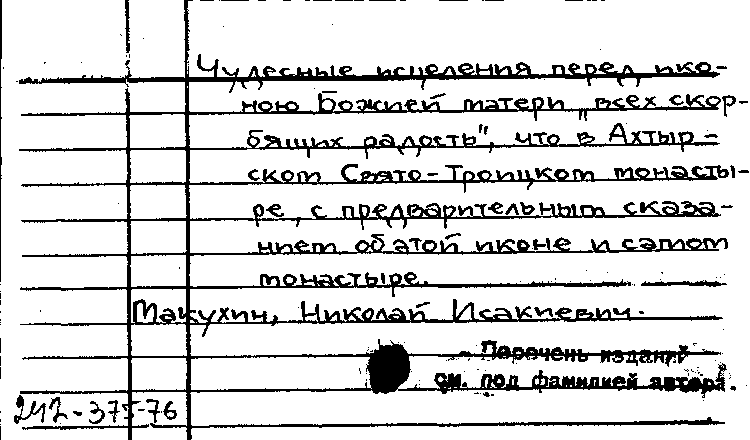 Чудесные исцеления перед ико-
ною Божией матери „всех скор-
бящих радость", что в Ахтыр-
ском Свято-Троицком монасты-
ре, с предварительным сказа-
нием об этой иконе и самом
монастыре.
Макухин, Николай Исакиевич.
Перечень изданий
см. под фамилией автора.
242-375-76